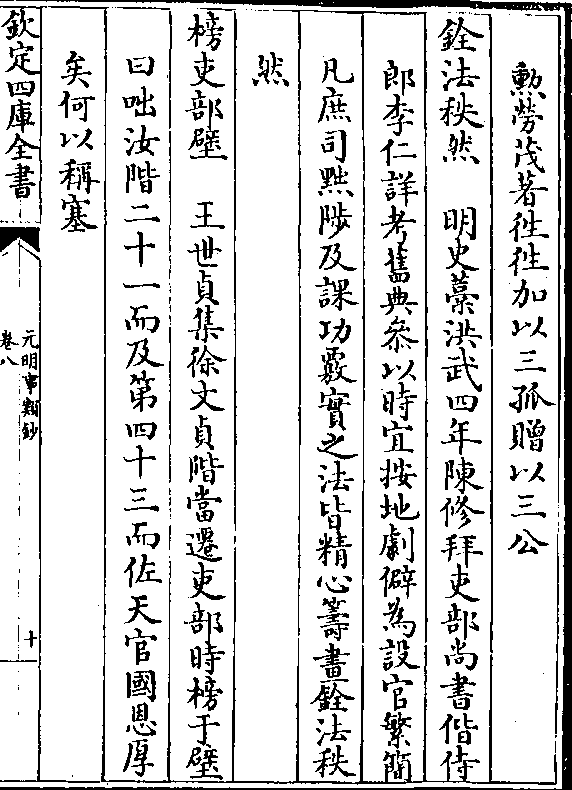 勲勞茂著徃徃加以三孤贈以三公
銓法秩然　明史藳洪武四年陳修拜吏部尚書偕侍
郎李仁詳考舊典叅以時宜按地劇僻為設官繁簡
凡庶司黜陟及課功覈實之法皆精心籌畫銓法秩
然
榜吏部壁　王世貞集徐文貞階當遷吏部時榜于壁
曰咄汝階二十一而及第四十三而佐天官國恩厚
矣何以稱塞
欽定四庫全書
元明事類鈔
卷八
十